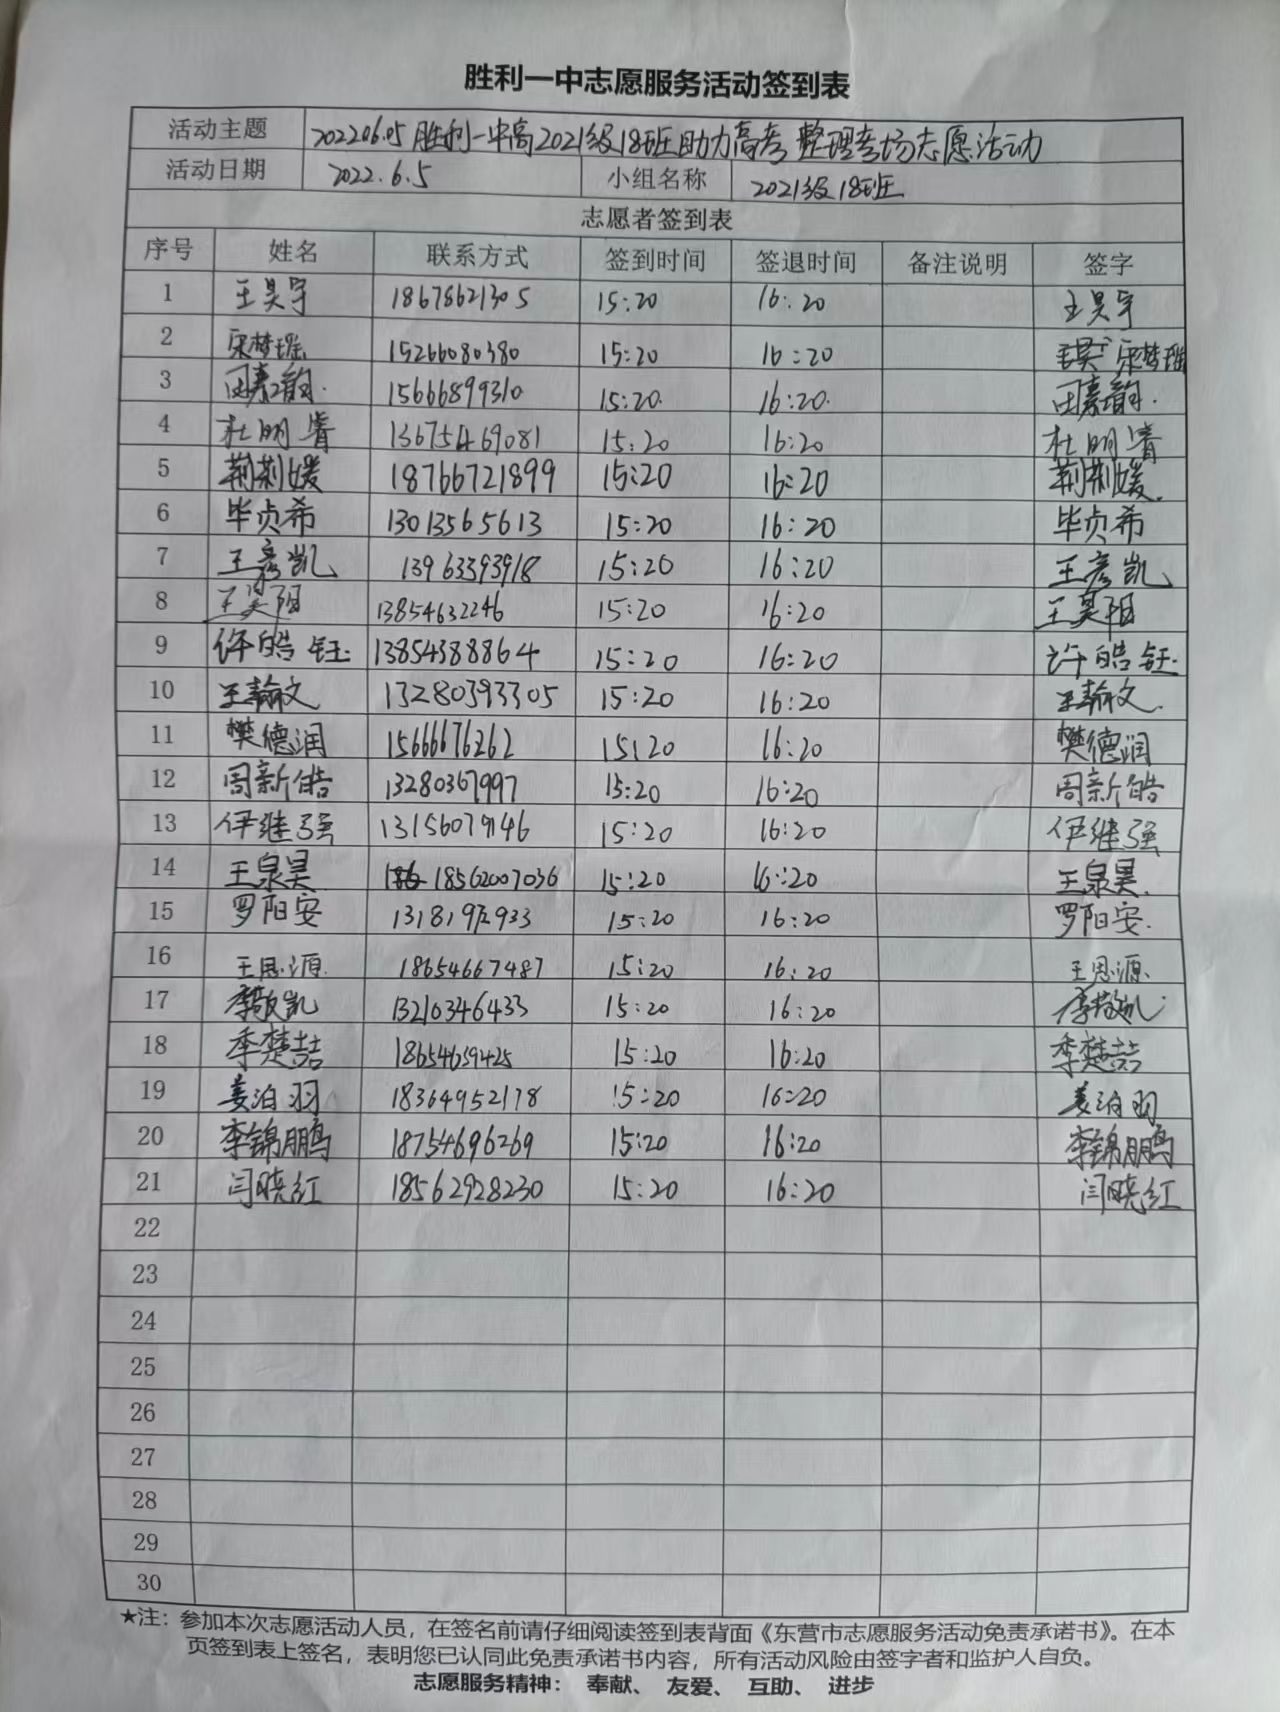 胜利一中志愿服务活动签到表
活动主题 20220605胜利一中高2021级18班助力高考整理考场志愿活动
活动日期 2022.6.5 小组名称 2021级18班
志愿者签到表
序号 姓名 联系方式 签到时间 签退时间 备注说明 签字
1 王昊宇 18678621305 15:20 16:20 王昊宇
2 宋梦瑶 15266080380 15:20 16:20 宋梦瑶
3 田嘉韵 15666899310 15:20 16:20 田嘉韵
4 杜明睿 13675469081 15:20 16:20 杜明睿
5 荆荆媛 18766721899 15:20 16:20 荆荆媛
6 毕贞希 13013565613 15:20 16:20 毕贞希
7 王彦凯 13963393918 15:20 16:20 王彦凯
8 王昊阳 13854632246 15:20 16:20 王昊阳
9 许皓钰 13854388864 15:20 16:20 许皓钰
10 王翰文 13280393305 15:20 16:20 王翰文
11 樊德润 15666676262 15:20 16:20 樊德润
12 周新皓 13280367997 15:20 16:20 周新皓
13 伊继强 13156079146 15:20 16:20 伊继强
14 王泉昊 18562007036 15:20 16:20 王泉昊
15 罗阳安 15:20 16:20 罗阳安
16 王思源 18654667487 15:20 16:20 王思源
17 李敬凯 13210346433 15:20 16:20 李敬凯
18 季楚喆 18654659425 15:20 16:20 季楚喆
19 姜泊羽 18364952178 15:20 16:20 姜泊羽
20 李锦鹏 18754696269 15:20 16:20 李锦鹏
21 闫晓红 18562928230 15:20 16:20 闫晓红
22
23
24
25
26
27
28
29
30
★注：参加本次志愿活动人员，在签名前请仔细阅读签到表背面《东营市志愿服务活动免责承诺书》。在本
页签到表上签名，表明您已认同此免责承诺书内容，所有活动风险由签字者和监护人自负。
志愿服务精神： 奉献、 友爱、 互助、 进步